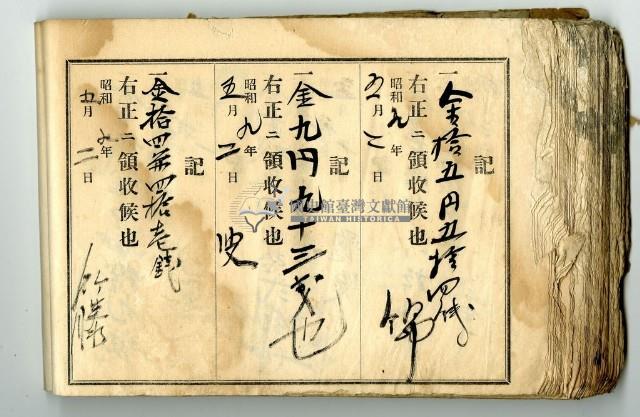 記
一金拾五円五拾四銭
右正ニ領收候也
昭和九年
五月二日
記
一金九円九十三戋也
右正ニ領收候也
昭和九年
五月二日
記
一金拾四円四拾壱銭
右正ニ領收候也
昭和九年
五月二日
國史館臺灣文獻館
TAIWAN HISTORICA